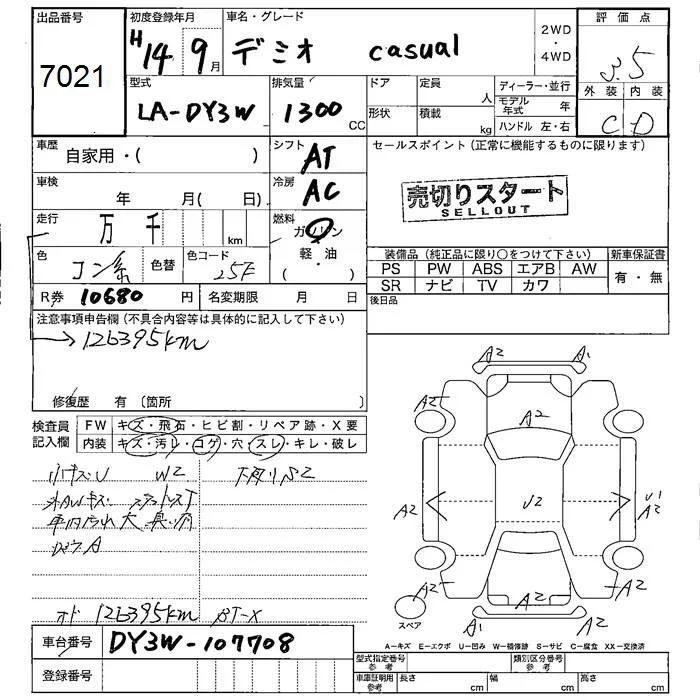 出品番号 初度登録年月 車名・グレード 評価点
7021 H14 9月 デミオ casual 2WD・4WD 3.5
型式 排気量 ドア 定員 人 ディーラー・並行 外装 内装
LA-DY3W 1300 CC 形状 積載 kg モデル年式 年 C D
ハンドル 左・右
車歴 自家用・( ) シフト AT セールスポイント(正常に機能するものに限ります)
車検 年 月( 日) 冷房 AC
売切りスタート
SELLOUT
走行 万 千 km 燃料 ガソリン
軽・油
( ・ )
色 コン系 色替 色コード 25F
装備品(純正品に限り○をつけて下さい) 新車保証書
PS PW ABS エアB AW 有・無
SR ナビ TV カワ
R券 10680 円 名変期限 月 日 後日品
注意事項申告欄(不具合内容等は具体的に記入して下さい)
→126395km
修復歴 有(箇所
検査員記入欄 FW キズ・飛石・ヒビ割・リペア跡・X要
内装 キズ・汚レ・コゲ・穴・スレ・キレ・破レ
小キズU W2 下廻りS2
外AWキズ
車内汚れ大
オド 126395km BT-X
A2 A1
A2 A2
A2
A2 U2 U1 A2
A2 A2 A2
A1 A2
スペア
A-キズ E-エクボ U-凹み W-補修跡 S-サビ C-腐食 XX-交換済
車台番号 DY3W-107708
登録番号
型式指定番号 参考 類別区分番号 参考
車庫証明用 参考 長さ cm 幅 cm 高さ cm